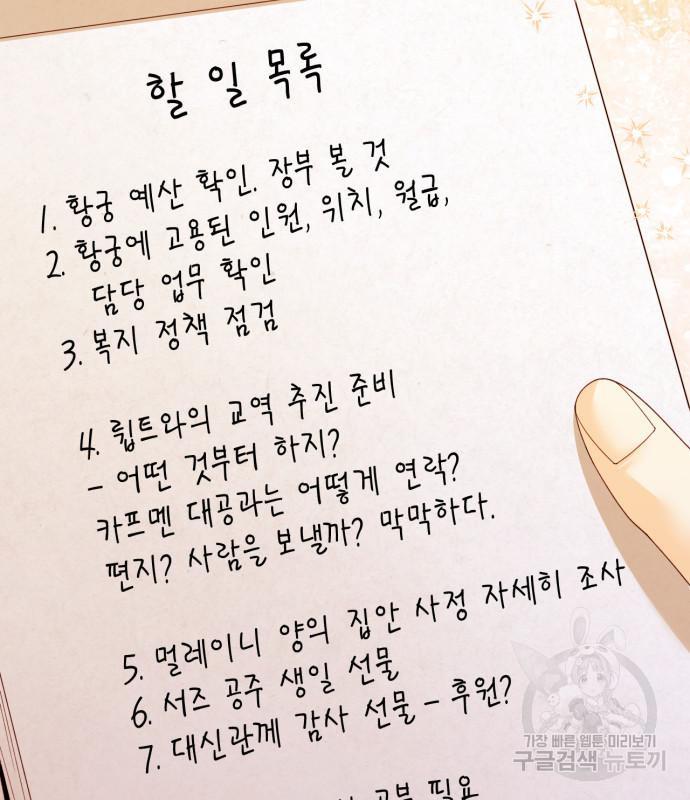 할 일 목록
1. 황궁 예산 확인. 장부 볼 것
2. 황궁에 고용된 인원, 위치, 월급,
담당 업무 확인
3. 복지 정책 점검
4. 륍트와의 교역 추진 준비
- 어떤 것부터 하지?
카프멘 대공과는 어떻게 연락?
편지? 사람을 보낼까? 막막하다.
5. 멀레이니 양의 집안 사정 자세히 조사
6. 서즈 공주 생일 선물
7. 대신관께 감사 선물 - 후원?
공부 필요
가장 빠른 웹툰 미리보기
구글검색 뉴토끼